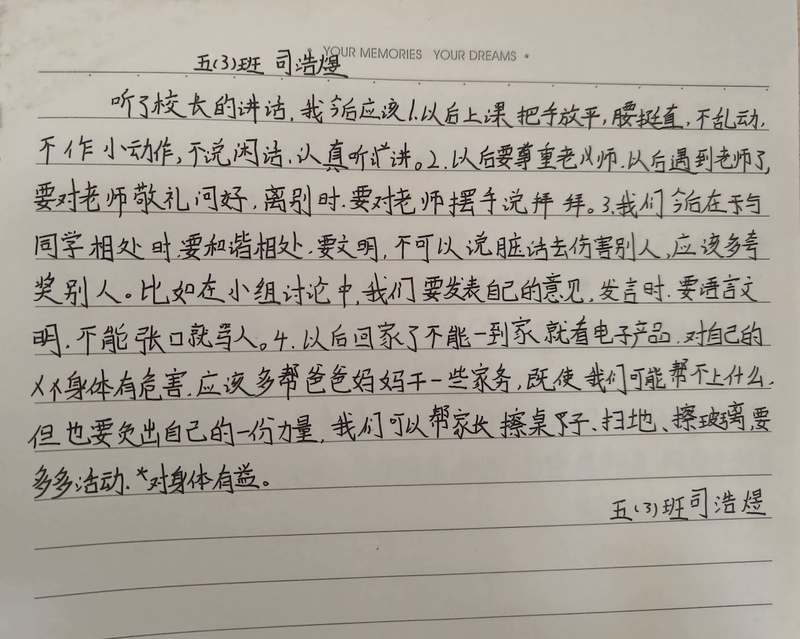 YOUR MEMORIES YOUR DREAMS
五(3)班 司浩煜
听了校长的讲话,我今后应该1.以后上课把手放平,腰挺直,不乱动.
不作小动作,不说闲话.认真听讲。2.以后要尊重老师.以后遇到老师了,
要对老师敬礼问好,离别时.要对老师摆手说拜拜。3.我们今后在与
同学相处时,要和谐相处.要文明,不可以说脏话去伤害别人,应该多夸
奖别人。比如在小组讨论中,我们要发表自己的意见,发言时.要语言文
明.不能张口就骂人。4.以后回家了不能一到家就看电子产品.对自己的
身体有危害.应该多帮爸爸妈妈干一些家务,既使我们可能帮不上什么.
但也要负出自己的一份力量,我们可以帮家长擦桌子、扫地、擦玻璃,要
多多活动.对身体有益。
五(3)班司浩煜